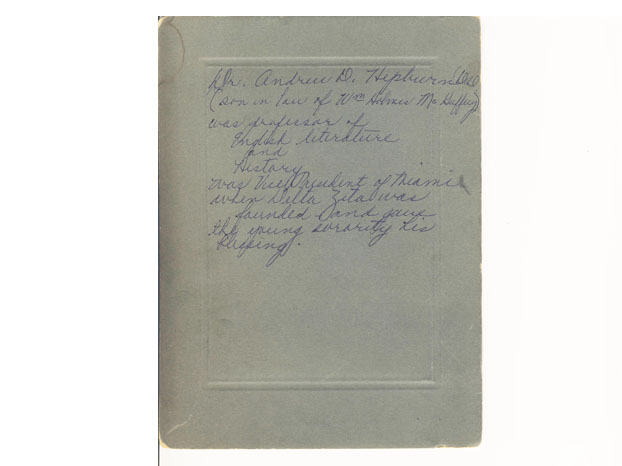 Dr. Andrew D. Hepburn
(son in law of Wm Holmes McGuffey)
was professor of
English literature
and
History
was Vice President of Miami
when Delta Zeta was
founded and gave
the young sorority his
blessing.